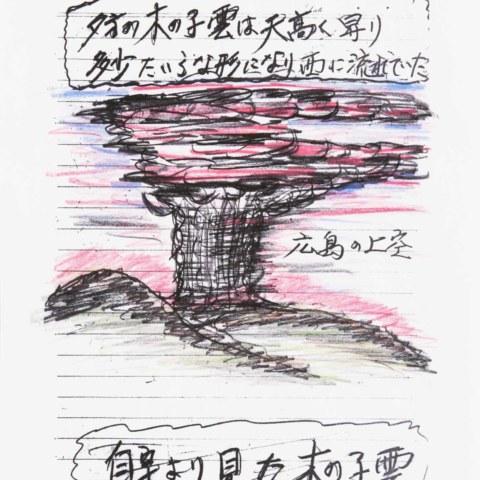 夕方の木の子雲は天高く昇り
多少たいらな形になり西に流れていた
広島の上空
より見た木の子雲